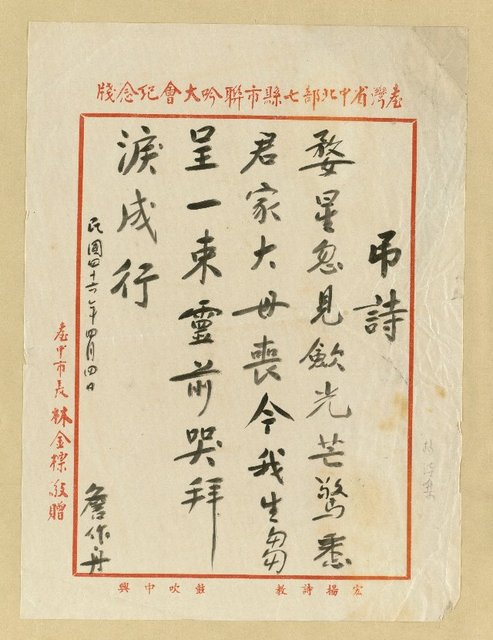 臺灣省中北部七縣市聯吟大會紀念牋
弔詩
婺星忽見斂光芒驚悉
君家大母喪今我生芻
呈一束靈前哭拜
淚成行
民國四十六年四月四日
詹作舟
臺中市長林金標敬贈
宏揚詩教
鼓吹中興